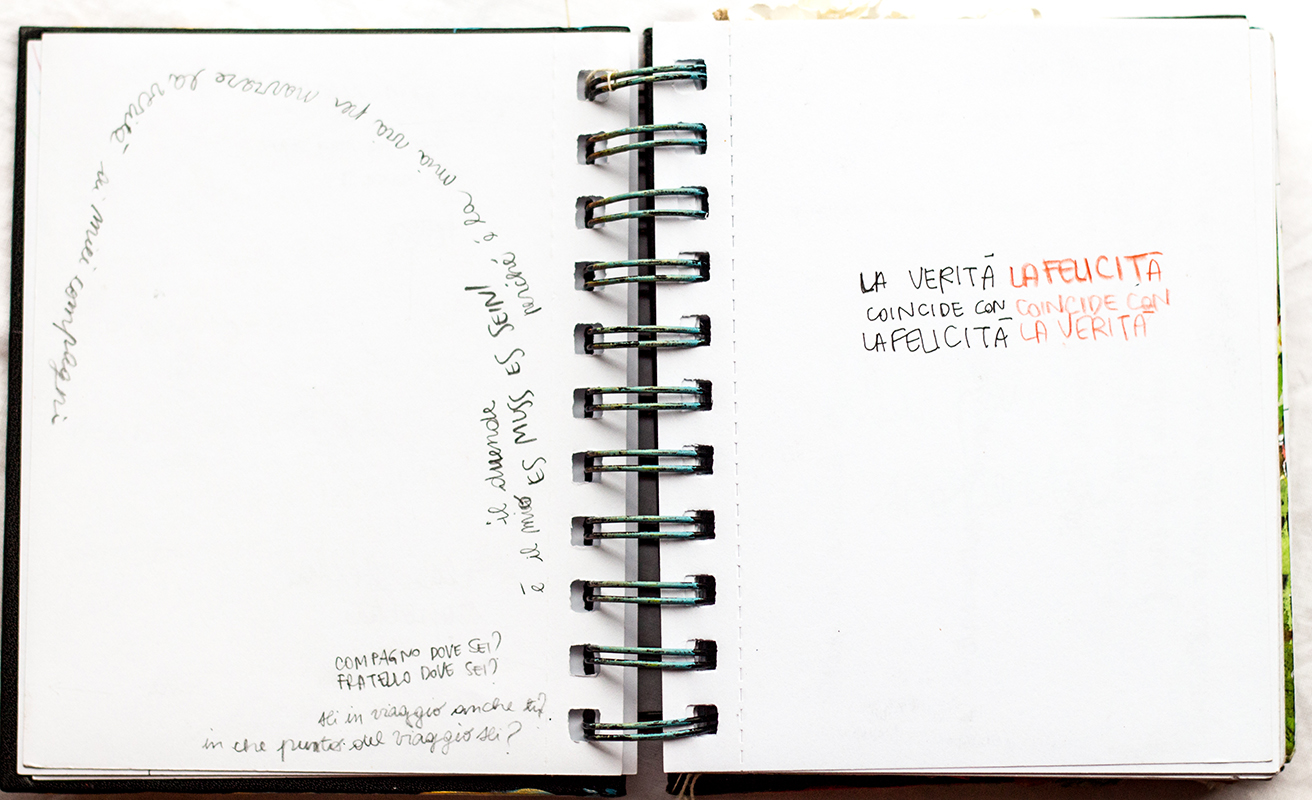 il duende
è il mio ES MUSS ES SEIN!
perché é la mia via per narrare la verità ai miei compagni
COMPAGNO DOVE SEI?
FRATELLO DOVE SEI?
sei in viaggio anche tu?
in che punto del viaggio sei?
LA VERITÀ LA FELICITÀ
COINCIDE CON COINCIDE CON
LA FELICITÀ LA VERITÀ